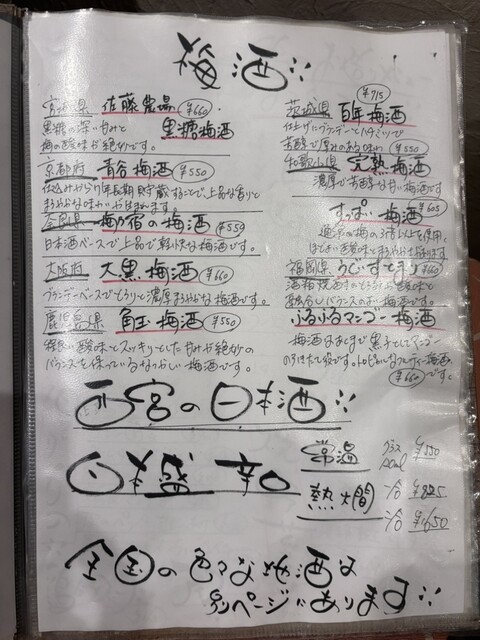 梅酒
宮城県 佐藤農場 ¥660
黒糖梅酒
黒糖の深い甘みと
梅の酸味が絶妙です。
京都府 青谷梅酒 ¥550
仕込みから1年長期貯蔵することで、上品な香りと
まろやかな味わいが生まれます。
奈良県 梅乃宿の梅酒 ¥550
日本酒ベースで上品で軽快な梅酒です。
大阪府 大黒梅酒 ¥660
ブランデーベースでとろりと濃厚まろやかな梅酒です。
鹿児島県 角玉梅酒 ¥550
程良い酸味とスッキリとした甘みが絶妙の
バランスを保っているなつかしい梅酒です。
茨城県 百年梅酒 ¥715
仕上げにブランデーとハチミツで
芳醇で厚みのある味わい ¥550
和歌山県 完熟梅酒
濃厚で芳醇な甘い梅酒です
すっぱい梅酒 ¥605
通常の梅の3倍以上を使用。
ほどよい酸味とまろやかな
福岡県 うぐいすとまり ¥660
酒粕焼酎のとろみが酸味と
融合しバランスのよい梅酒です。
ふるふるマンゴー梅酒
梅酒はあくまで黒子としてマンゴー
の引きたて役です。トロピカルなフルーティー梅酒
です。 ¥660
西宮の日本酒
日本盛 辛口
常温 グラス ¥550
熱燗 1合 ¥825
2合 ¥1650
全国の色々な地酒は
別ページにあります